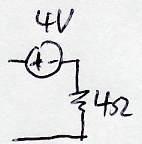 4V
+ -
4Ω